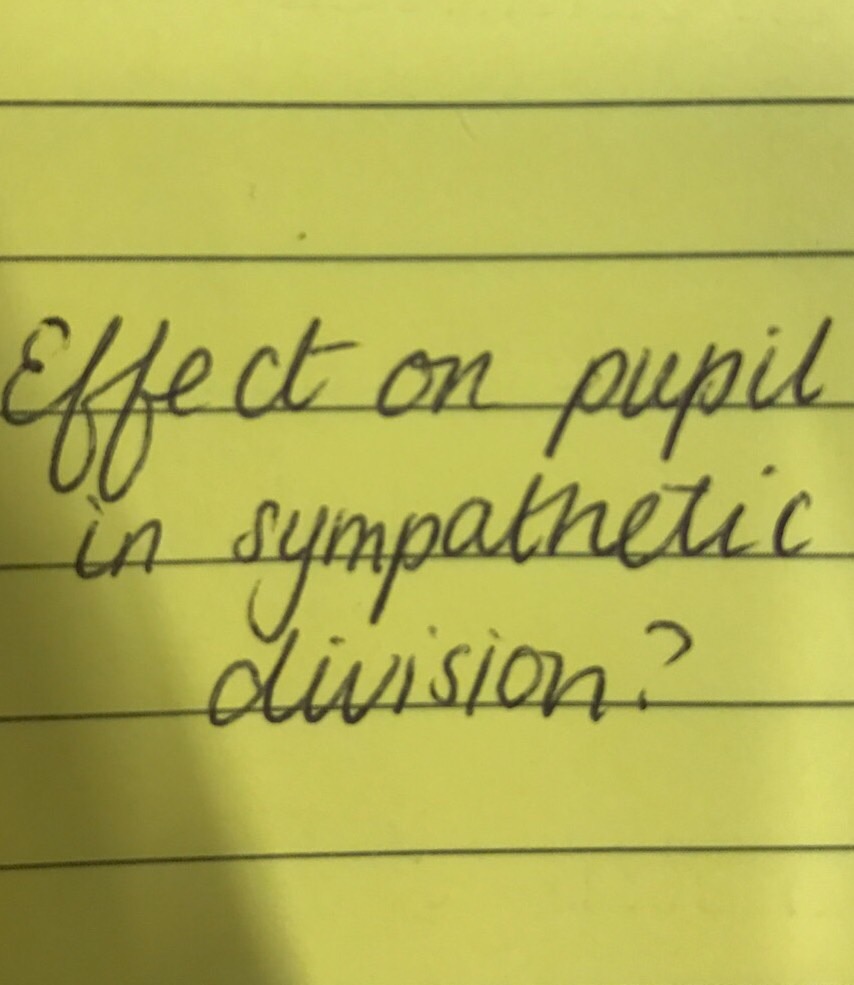 Effect on pupil
in sympathetic
division?